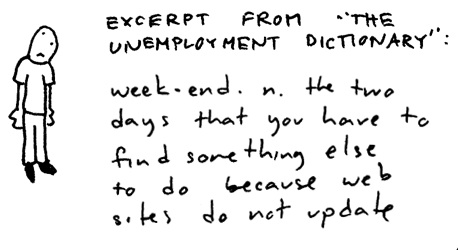 EXCERPT FROM "THE
UNEMPLOYMENT DICTIONARY":
week-end. n. the two
days that you have to
find something else
to do because web
sites do not update